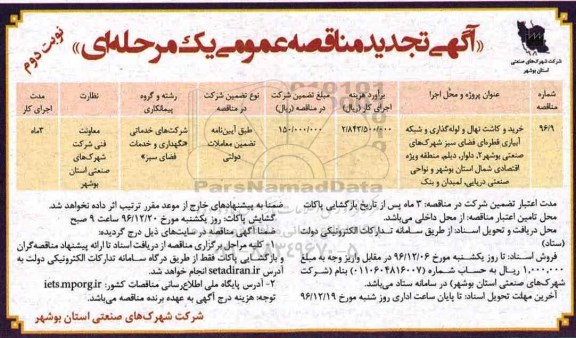 نوبت دوم
«آگهی تجدید مناقصه عمومی یک مرحله‌ای»
شرکت شهرک‌های صنعتی
استان بوشهر
شماره مناقصه
عنوان پروژه و محل اجرا
برآورد هزینه اجرای کار (ریال)
مبلغ تضمین شرکت در مناقصه (ریال)
نوع تضمین شرکت در مناقصه
رشته و گروه پیمانکاری
نظارت
مدت اجرای کار
۹۶/۹
خرید و کاشت نهال و لوله‌گذاری و شبکه
آبیاری قطره‌ای فضای سبز شهرک‌های
صنعتی بوشهر۲، دلوار، دیلم، منطقه ویژه
اقتصادی شمال استان بوشهر و نواحی
صنعتی دریایی، لمبدان و بنک
۲/۸۴۳/۵۰۰/۰۰۰
۱۵۰/۰۰۰/۰۰۰
طبق آیین‌نامه
تضمین معاملات
دولتی
شرکت‌های خدماتی
«نگهداری و خدمات
فضای سبز»
معاونت
فنی شرکت
شهرک‌های
صنعتی استان
بوشهر
۳ماه
مدت اعتبار تضمین شرکت در مناقصه: ۳ ماه پس از تاریخ بازگشایی پاکات
محل تامین اعتبار مناقصه: از محل داخلی می‌باشد.
محل دریافت و تحویل اسناد: از طریق سامانه تدارکات الکترونیکی دولت
(ستاد)
فروش اسناد: تا روز یکشنبه مورخ ۹۶/۱۲/۰۶ در مقابل واریز وجه به مبلغ
۱,۰۰۰,۰۰۰ ریال به حساب شماره (۰۱۱-۶۰۴۸۱۶۰۰۷) بنام (شرکت
شهرک‌های صنعتی استان بوشهر) در سامانه ستاد می‌باشد.
آخرین مهلت تحویل اسناد: تا پایان ساعت اداری روز شنبه مورخ ۹۶/۱۲/۱۹
ضمنا به پیشنهادهای خارج از موعد مقرر ترتیب اثر داده نخواهد شد.
گشایش پاکات: روز یکشنبه مورخ ۹۶/۱۲/۲۰ ساعت ۹ صبح
ضمنا آگهی مناقصه در سایت‌های ذیل درج گردیده:
۱- کلیه مراحل برگزاری مناقصه از دریافت اسناد تا ارائه پیشنهاد مناقصه‌گران
و بازگشایی پاکات فقط از طریق درگاه سامانه تدارکات الکترونیکی دولت به
آدرس setadiran.ir انجام خواهد شد.
۲- آدرس پایگاه ملی اطلاع‌رسانی مناقصات کشور: iets.mporg.ir
توجه: هزینه درج آگهی به عهده برنده مناقصه می‌باشد.
شرکت شهرک‌های صنعتی استان بوشهر
ParsNamadData